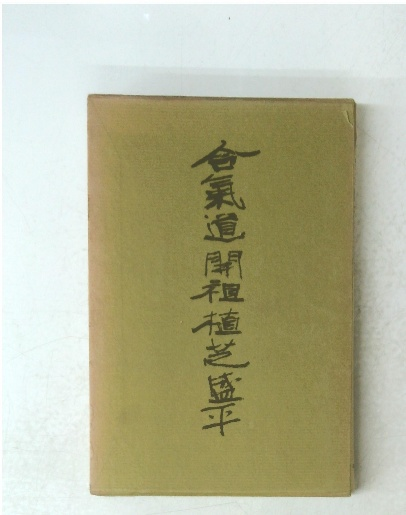 合氣道開祖植芝盛平